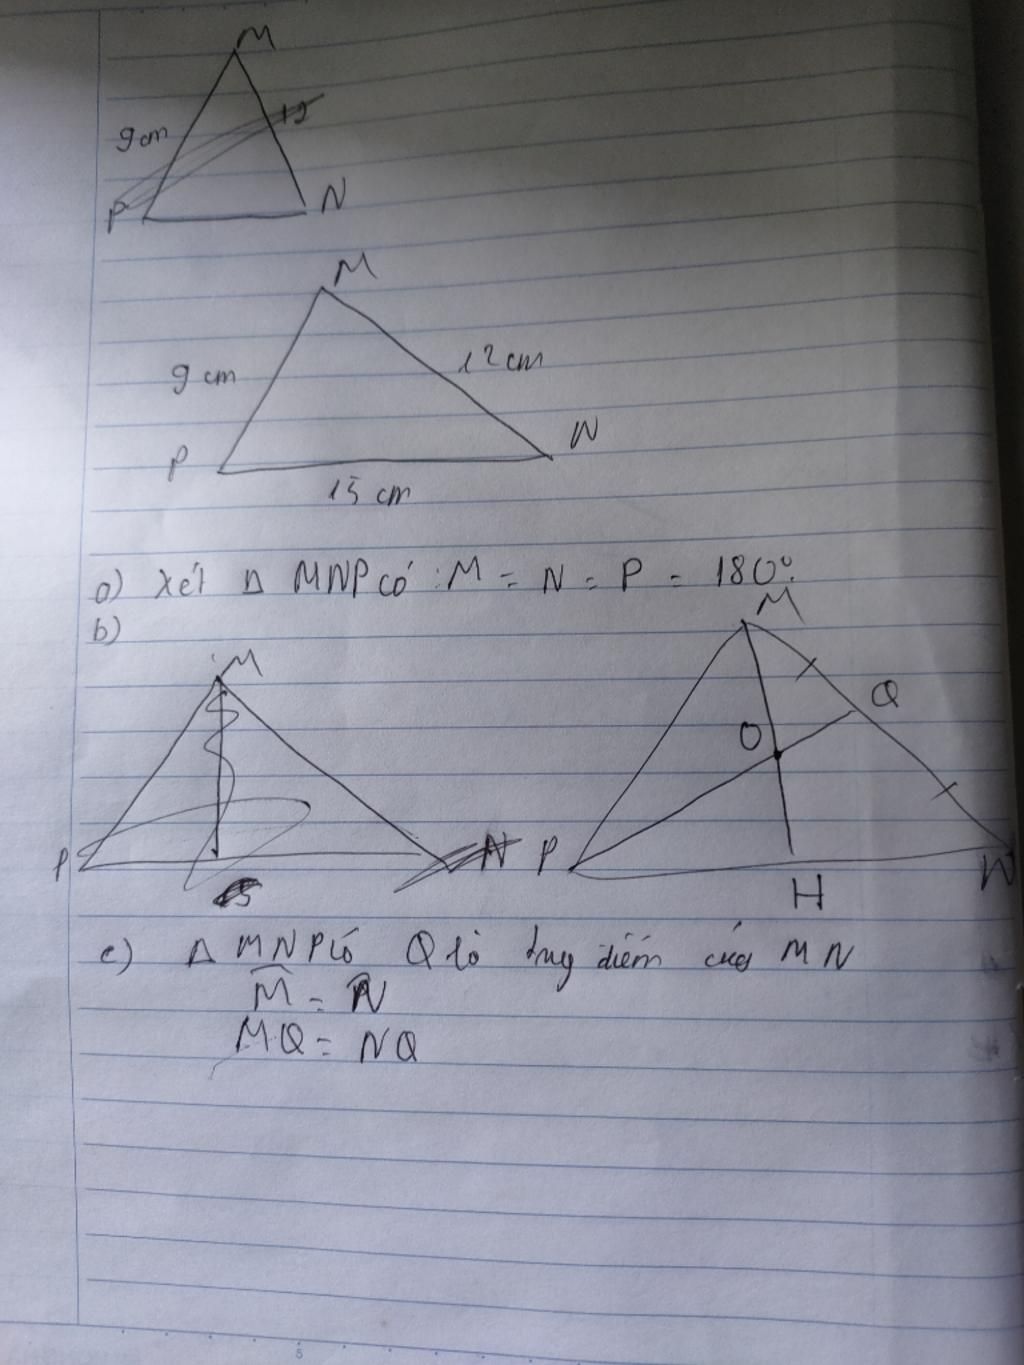 M
9 cm
12
P
N
M
9 cm
12 cm
P
N
15 cm
a) Xét Δ MNP có : M = N = P = 180°.
b)
M
P
N
M
Q
O
P
H
N
c) Δ MNP có Q là trung điểm của MN
M = N
MQ = NQ